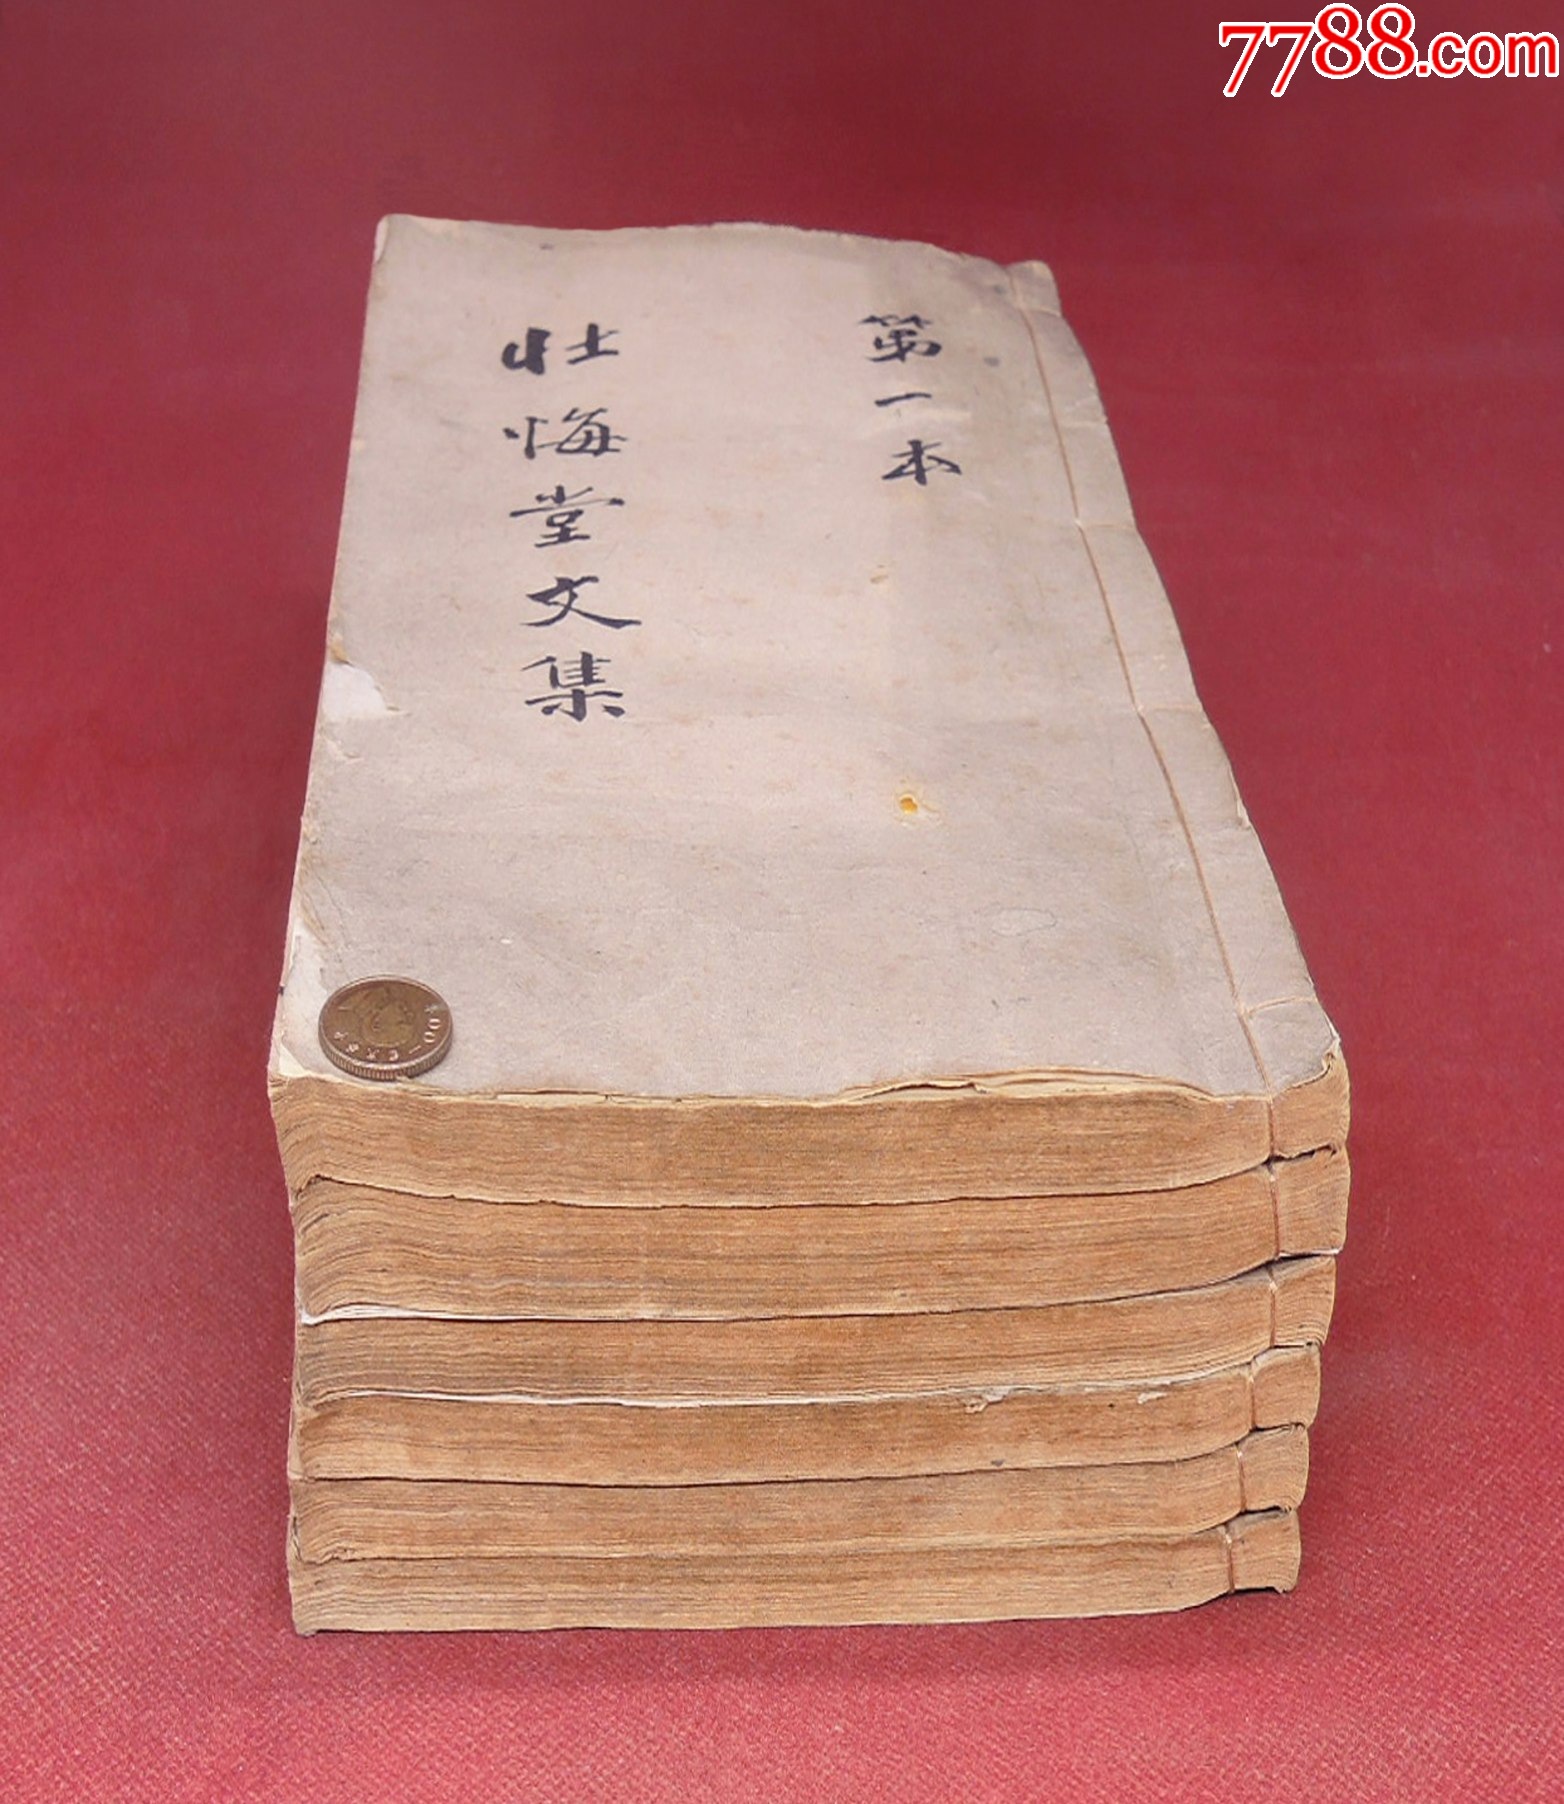 7788.com
第一本
壮悔堂文集